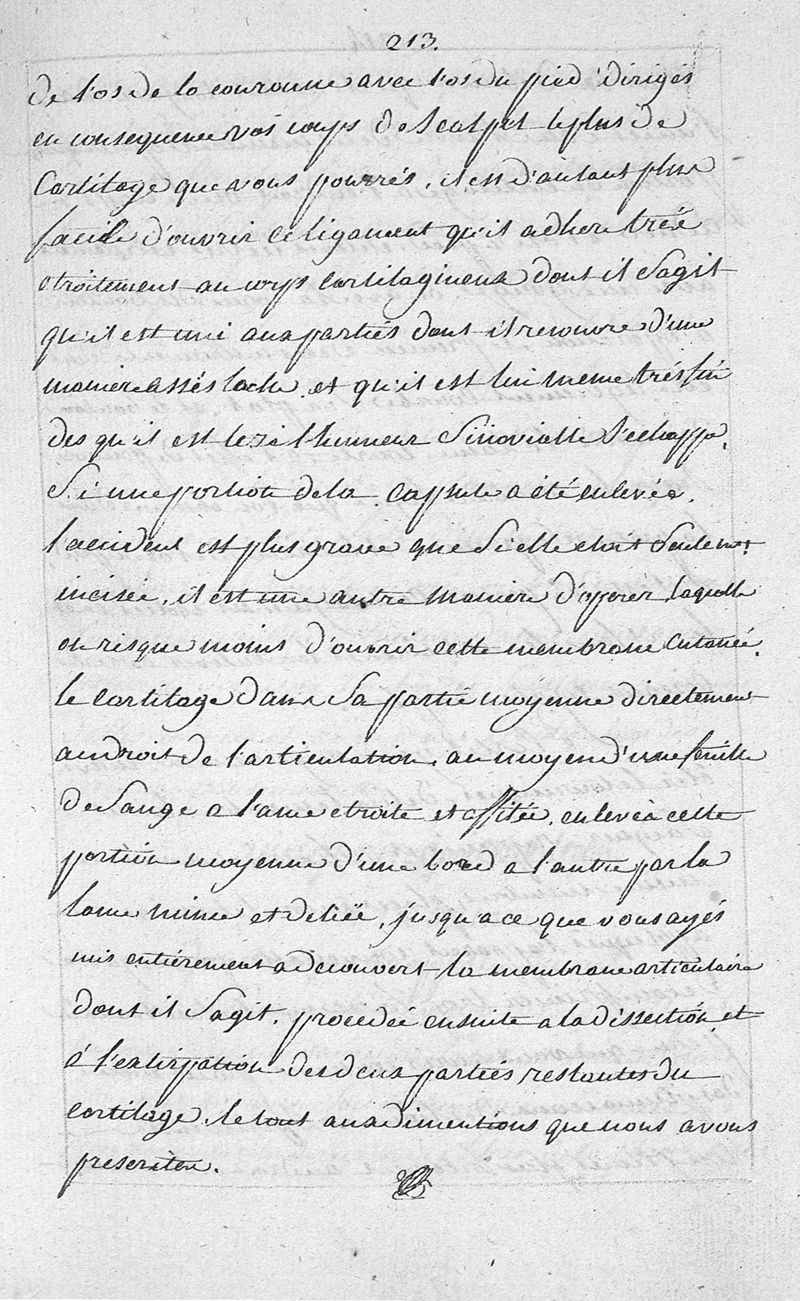 213.
de l'os de la couronne avec l'os du pied dirigés
en consequence vos coups de Scalpel le plus de
Cartilage que vous pourrés, il est d'autant plus
facile d'ouvrir ce ligament qu'il adhere trée
etroitement au corps cartilagineux dont il Sagit
qu'il est uni aux parties dont il recouvre d'une
maniere assés lache et qu'il est lui meme trés fin
des qu'il est lezé l'humeur Sinovialle S'echappe,
Si une portion de la Capsule a été enlevée,
l'accident est plus grave que Si elle etoit Seulemt
incisée, il est une autre maniere d'operer, laquelle
on risque moins d'ouvrir cette membrane Entamée
le Cartilage dans Sa partie moyenne directement
au droit de l'articulation, au moyen d'une feuille
de Sauge a l'ame etroite et affilée, enlevée cette
portion moyenne d'une bord a l'autre par la
lame mince et deliée, jusqu'a ce que vous ayés
mis entiérement a decouvert la membrane articulaire
dont il Sagit, procedée ensuite a la dissection et
à l'extirpation des deux parties restantes du
Cartilage, le tout aux dimentions que nous avons
prescrites.